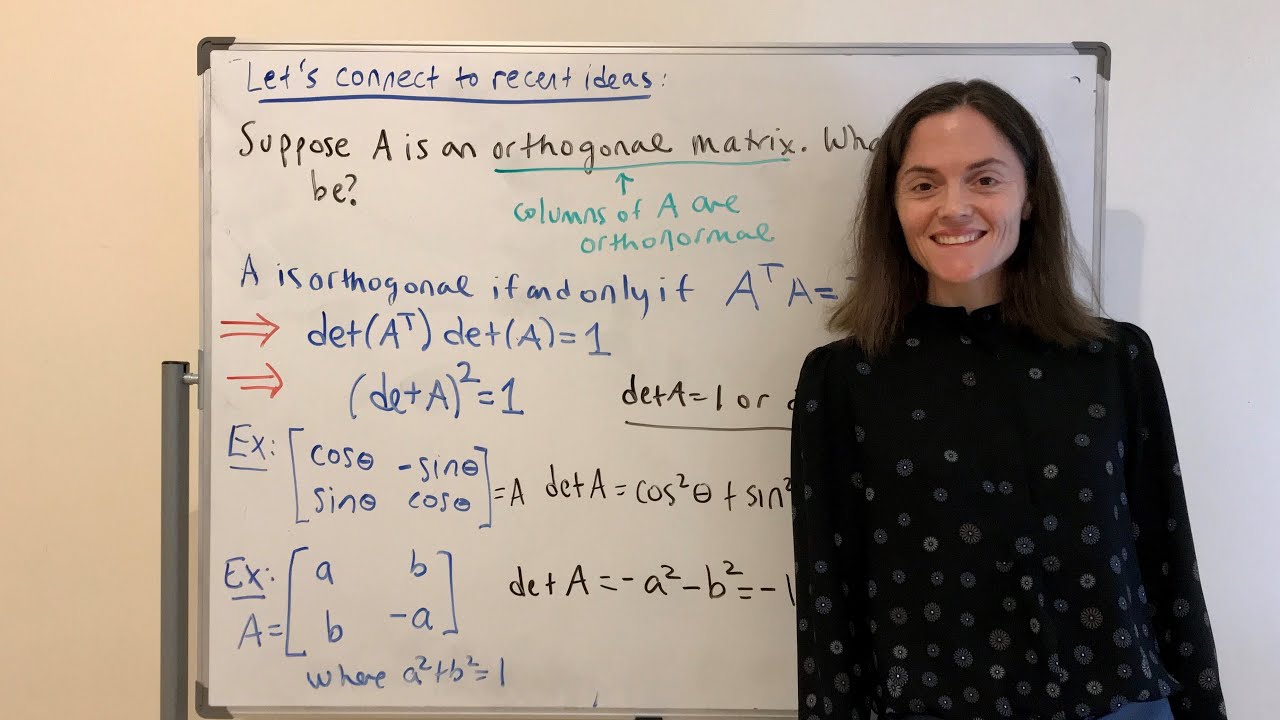 Let's connect to recent ideas:
Suppose A is an orthogonal matrix.
be?
↑
columns of A are
orthonormal
A is orthogonal if and only if AᵀA=
⇒ det(Aᵀ) det(A)=1
⇒ (det A)²=1
det A=1 or
Ex: [cosθ -sinθ
sinθ cosθ] =A det A = cos²θ + sin²
Ex: [a b
A= b -a] det A = -a²-b²=-1
where a²+b²=1